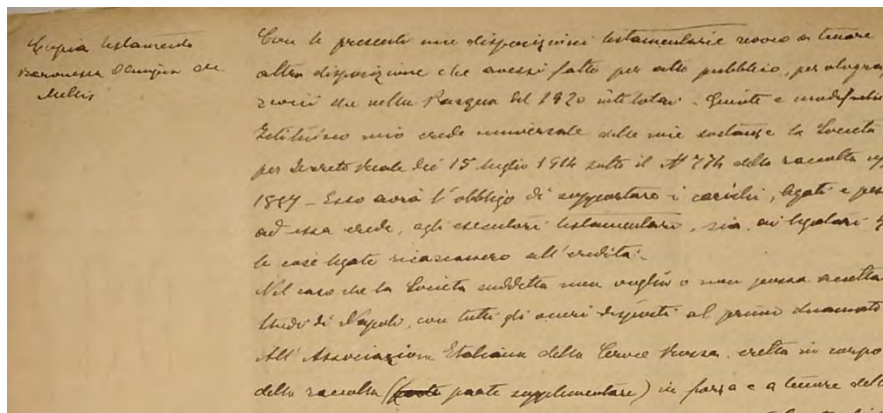 Copia testamento
Baronessa
Mellis
Con le presenti mie disposizioni testamentarie revoco a tenore
altra disposizione che avessi fatto per atto pubblico, per olografo
che nella Pasqua del 1920 intitolai - Giunte e modifiche
Istituisco mio erede universale delle mie sostanze la Società
per Decreto Reale dei 15 luglio 1914 sotto il N° 774 della raccolta
1887 - Essa avrà l'obbligo di sopportare i carichi, legati e pesi
ad essa erede, agli esecutori testamentari, sia, ai legatari
le cose legate ricascassero all'eredità.
Nel caso che la Società suddetta non voglia o non possa accetta
Studi di Napoli, con tutti gli oneri disposti al primo chiamato
All'Associazione Italiana della Croce Rossa, eretta in corpo
della raccolta (parte supplementare) in forza e a tenore dell